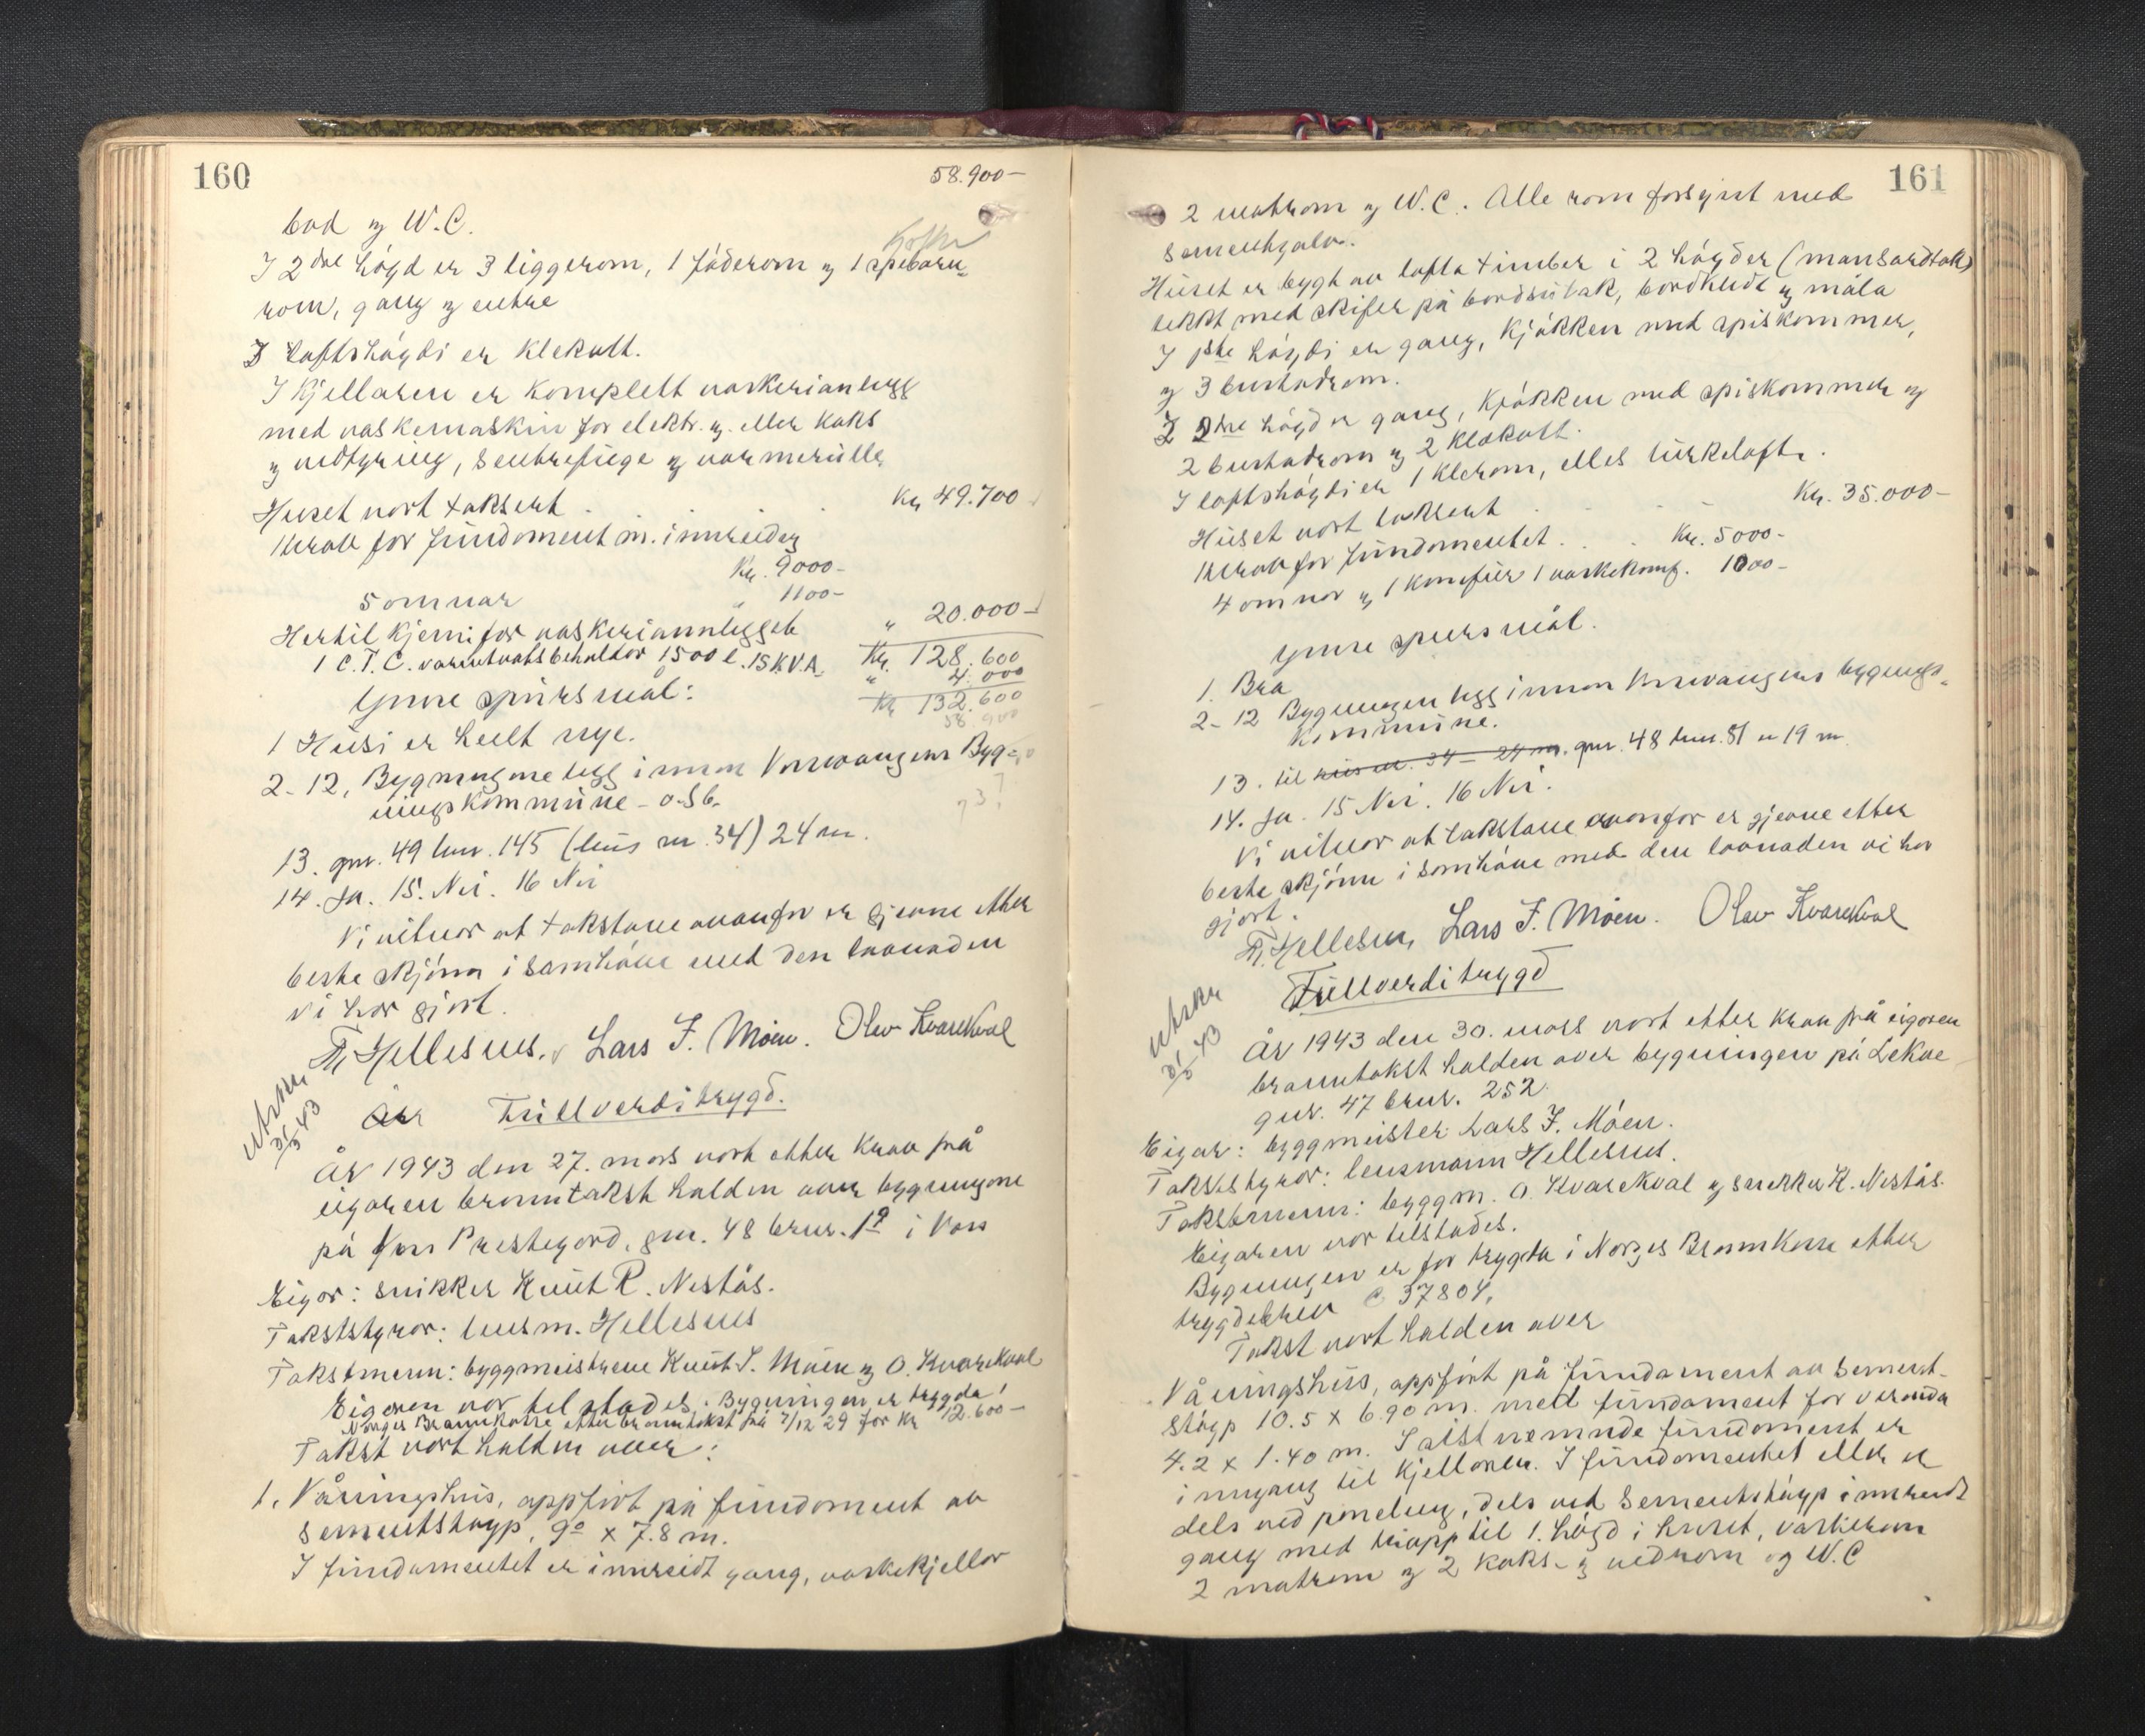 160
58.900-
bad og W.C.
I 2dre høgd er 3 liggerom, 1 føderom og 1 spebarn-
rom, gang og entre
I loftshøgdi er klekott.
I kjellaren er komplett vaskerianlegg
med vaskemaskin for elektr. og eller koks
og vedfyring, sentrefuge og varmerulle,
Huset vort taksert . Kr 49.700
Herav for fundament m. innreiding
Kr. 9000-
5 omnar " 1100-
Hertil kjem for vaskerianlegget " 20.000-
Kr. 128.600
1 C.T.C. varmtvatsbehaldar 1500 l. 15 K.V.A. " 4.000
Kr 132.600
58.900
Ymse spursmål:
1 Husi er heilt nye.
2-12, Bygningane ligg innan Vossevangens Byg-
ningskommune - o.s.b.
13. gnr. 49 bnr. 145 (hus nr. 34) 24 m.
14. Ja. 15. Nei. 16 Nei
Vi vitnar at takstane ovanfor er gjevne etter
beste skjønn i samhøve med den lovnaden
vi har gjort.
Hellesnes, Lars J. Møen. Olav Kvarekval
utskr 31/5 43
År Fullverditrygd.
År 1943 den 27. mars vort etter krav frå
eigaren branntakst halden over bygningane
på Voss Prestegard, gnr. 48 bnr. 19 i Voss
Eigar: snikker Knut R. Nestås.
Takststyrar: lensm. Hellesnes
Takstmenn: byggmeistrene Knut S. Møen og O. Kvarekval
Eigaren var tilstades. Bygningen er trygda i
Norges Brannkasse etter branntakst frå 7/12 29 for kr 12.600-
Takst vort halden over:
1. Våningshus, oppført på fundament av
sementstøyp, 9.0 x 7.8 m.
I fundamentet er innreidt gang, vaskekjellar
161
2 matrom og W.C. Alle rom forsynt med
sementgolv.
Huset er bygt av lafta timber i 2 høgder (mansardtak)
tekkt med skifer på bordsutak, bordkledt og måla
I 1ste høgdi er gang, kjøkken med spiskommer,
og 3 bustadrom.
I 2dre høgd er gang, kjøkken med spiskommer og
2 bustadrom og 2 klekott.
I loftshøgdi er 1 klerom, elles turkeloft.
Huset vort taksert . . . Kr. 35.000-
Herav for fundamentet . . . Kr. 5000-
4 omnar og 1 komfur 1 vaskekomf. 1000-
Ymse spursmål.
1. Bra
2-12 Bygningen ligg innan Vossevangens bygnings-
kommune.
13. til hus nr. 34 - 24 m. gnr. 48 bnr. 81 er 19 m
14. Ja. 15 Nei. 16 Nei.
Vi vitnar at takstane ovanfor er gjevne etter
beste skjønn i samhøve med den lovnaden vi har
gjort.
Hellesnes, Lars J. Møen. Olav Kvarekval
utskr 31/5 43
Fullverditrygd
År 1943 den 30. mars vort etter krav frå eigaren
branntakst halden over bygningen på Lekve
gnr. 47 bnr. 252.
Eigar: byggmeister Lars J. Møen.
Takststyrar: lensmann Hellesnes.
Takstmenn: byggm. O. Kvarekval og snikker K. Nestås.
Eigaren var tilstades.
Bygningen er for trygda i Norges Brannkasse etter
trygdebrev C 37804,
Takst vort halden over
Våningshus, oppført på fundament av sement-
støyp 10.5 x 6.90 m. med fundament for veranda
4.2 x 1.40 m. I sistnemnde fundament er
inngang til kjellaren. I fundamentet elles er
dels ved paneling, dels ved sementstøyp innreidt
gang med trapp til 1. høgd i huset, vaskerom
2 matrom og 2 koks- og vedrom og W.C